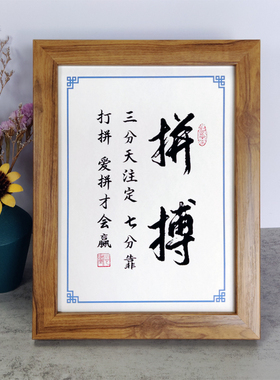 拼搏
三分天注定 七分靠
打拼 爱拼才会赢